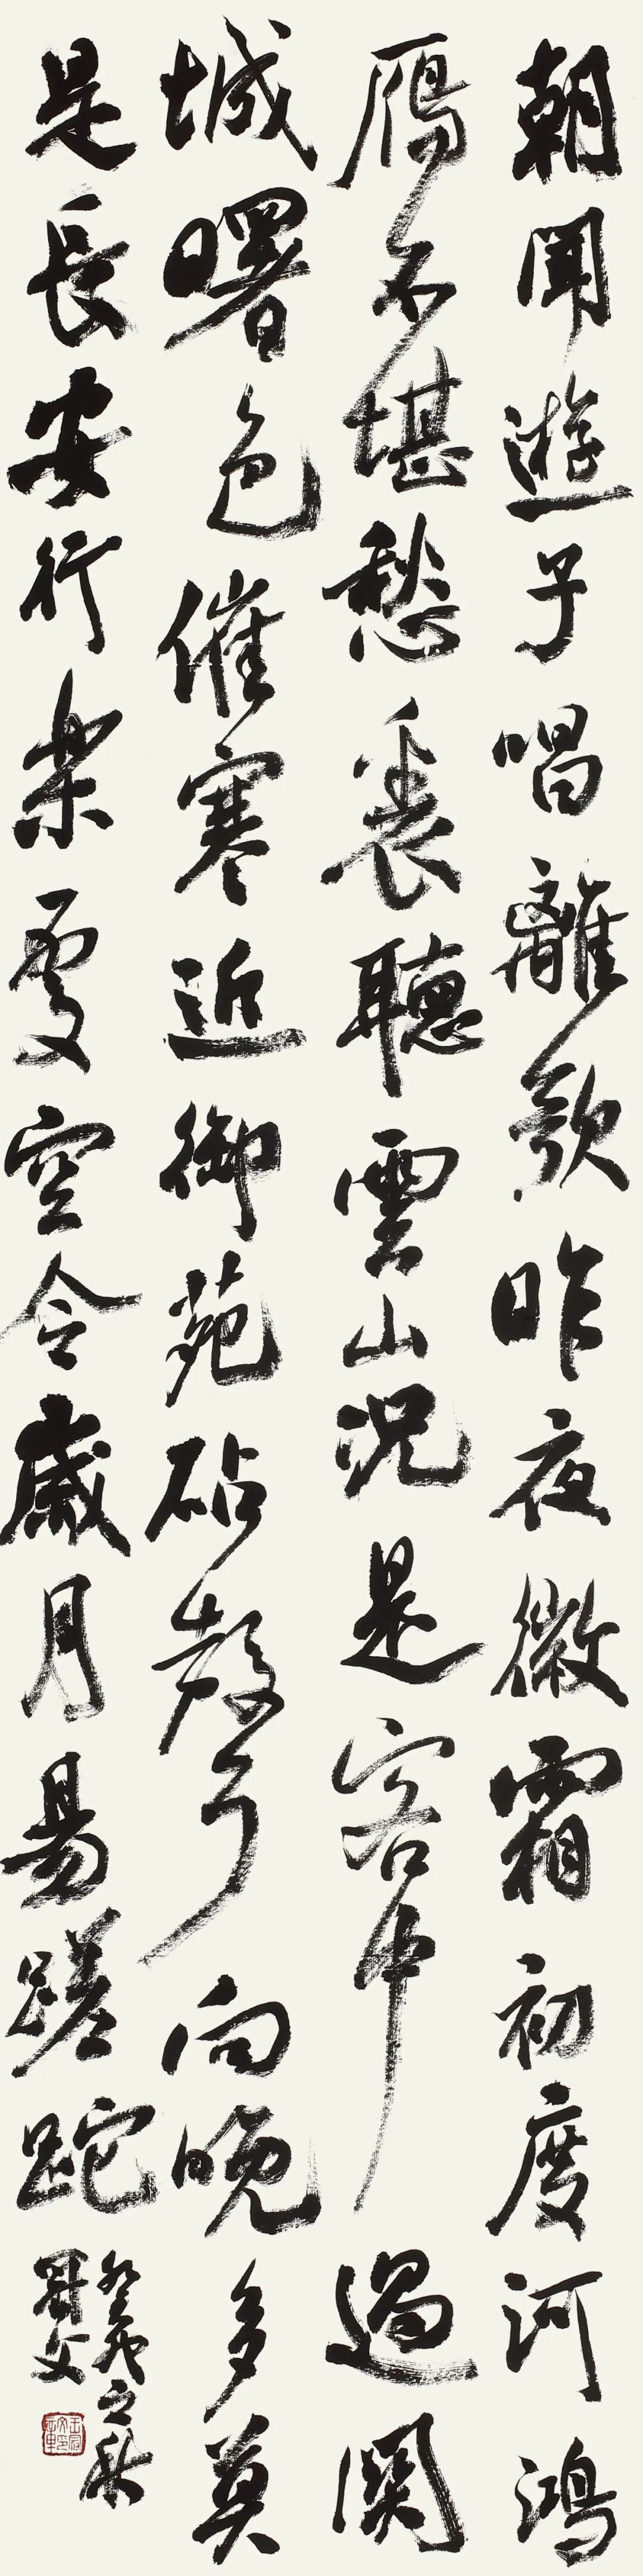 朝聞遊子唱離歌昨夜微霜初度河鴻
鴈不堪愁裏聽雲山況是客中過關
城曙色催寒近御苑砧聲向晚多莫
是長安行樂處空令歲月易蹉跎
之秋